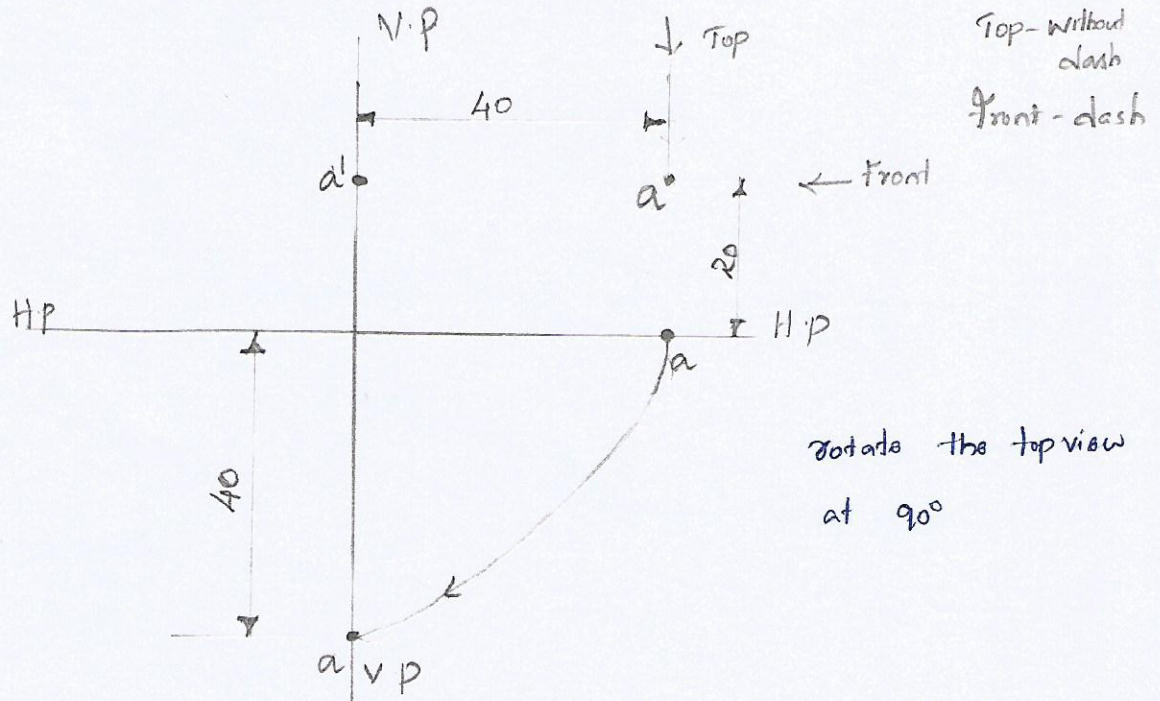 V.P
Top
Top-without
dash
40
front-dash
a'
a
front
20
H.P
H.P
a
40
rotate the topview
at 90°
a
V P